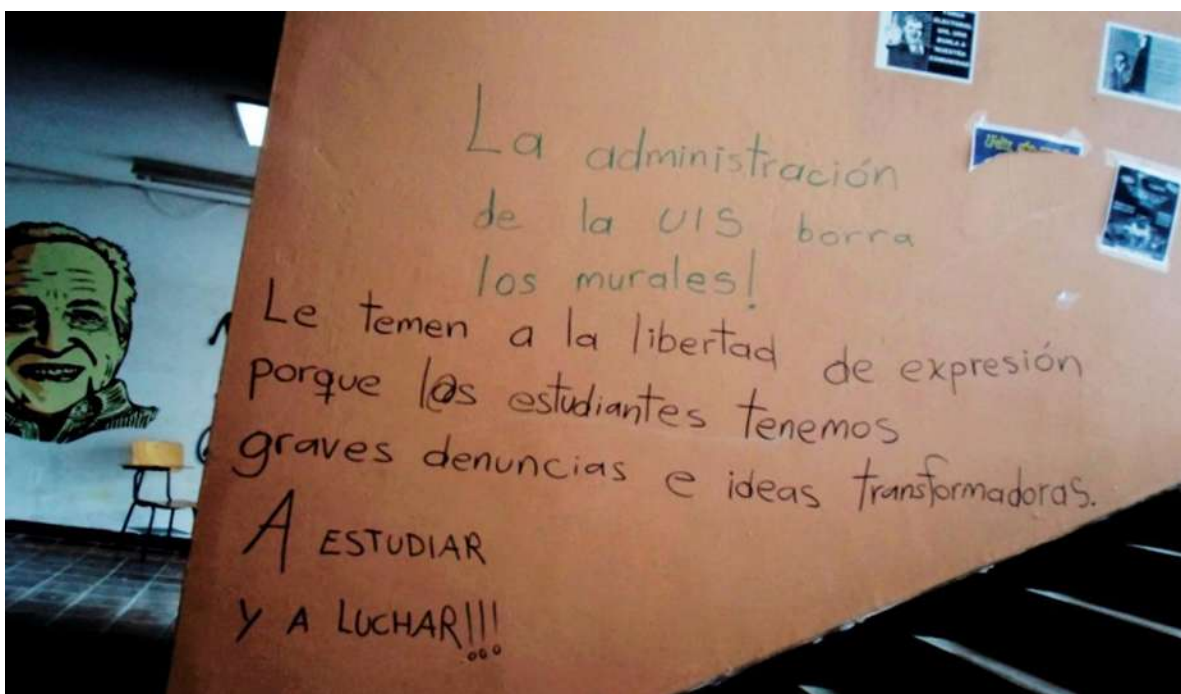 La administración
de la UIS borra
los murales!
Le temen a la libertad de expresión
porque l@s estudiantes tenemos
graves denuncias e ideas transformadoras.
A ESTUDIAR
Y A LUCHAR!!!
ELECTORAL